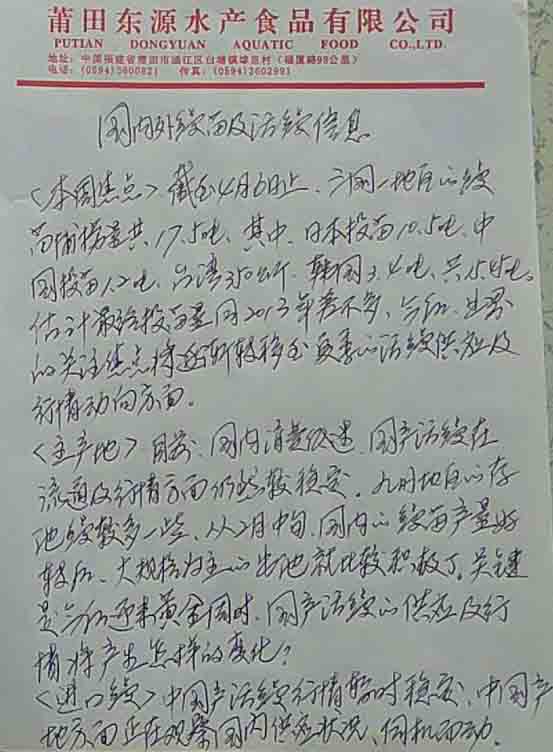 莆田东源水产食品有限公司
PUTIAN DONGYUAN AQUATIC FOOD CO.,LTD.
地址：中国福建省莆田市涵江区白塘镇埭里村（福厦路99公里）
电话：(0594)360082 传真：(0594)3602991
国内外鳗苗及活鳗信息
〈本周焦点〉截至4月6日止、三国一地区的鳗
苗捕捞量共17.5吨、其中、日本投苗10.5吨、中
国投苗1.2吨、台湾350公斤、韩国3.4吨、共15.45吨。
估计最终投苗量同2013年差不多、今后、业界
的关注焦点将逐渐转移至夏季的活鳗供应及
行情动向方面。
〈主产地〉目前、国内消费低迷、国产活鳗在
流通及行情方面仍然较稳定。九州地区的存
池鳗较多一些、从2月中旬、国内的鳗苗产量好
转后、大规格为主的出池就比较积极了。关键
是今后迎来黄金周时、国产活鳗的供应及行
情将产生怎样的变化？
〈进口鳗〉中国产活鳗行情暂时稳定、中国产
地方面正在观察国内供应状况、伺机而动。